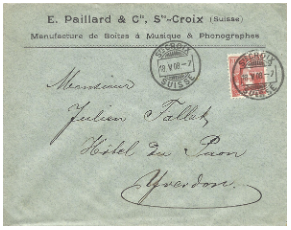 E. Paillard & Cie, Ste-Croix (Suisse)
Manufacture de Boîtes à Musique & Phonographes
STE CROIX
18.V.08.-7
SUISSE
STE CROIX
18.V.08.-7
SUISSE
Monsieur
Julien Fallet
Hôtel du Paon
Yverdon.